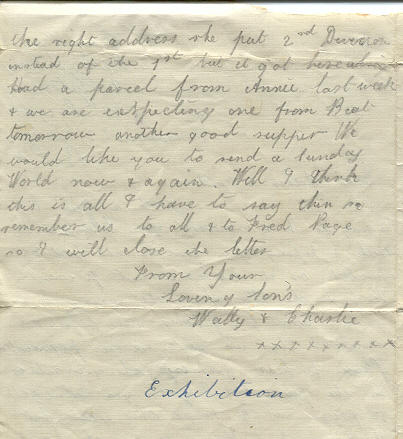 the right address she put 2nd Division
instead of the 1st but it got here
Had a parcel from Annie last week
& we are expecting one from Beat
tomorrow another good supper We
would like you to send a Sunday
World now & again. Well I think
this is all I have to say this
remember us to all & to Fred Page
so I will close the letter
From Your
Loving Son's
Wally & Charlie
xxxxxxxxx
Exhibition